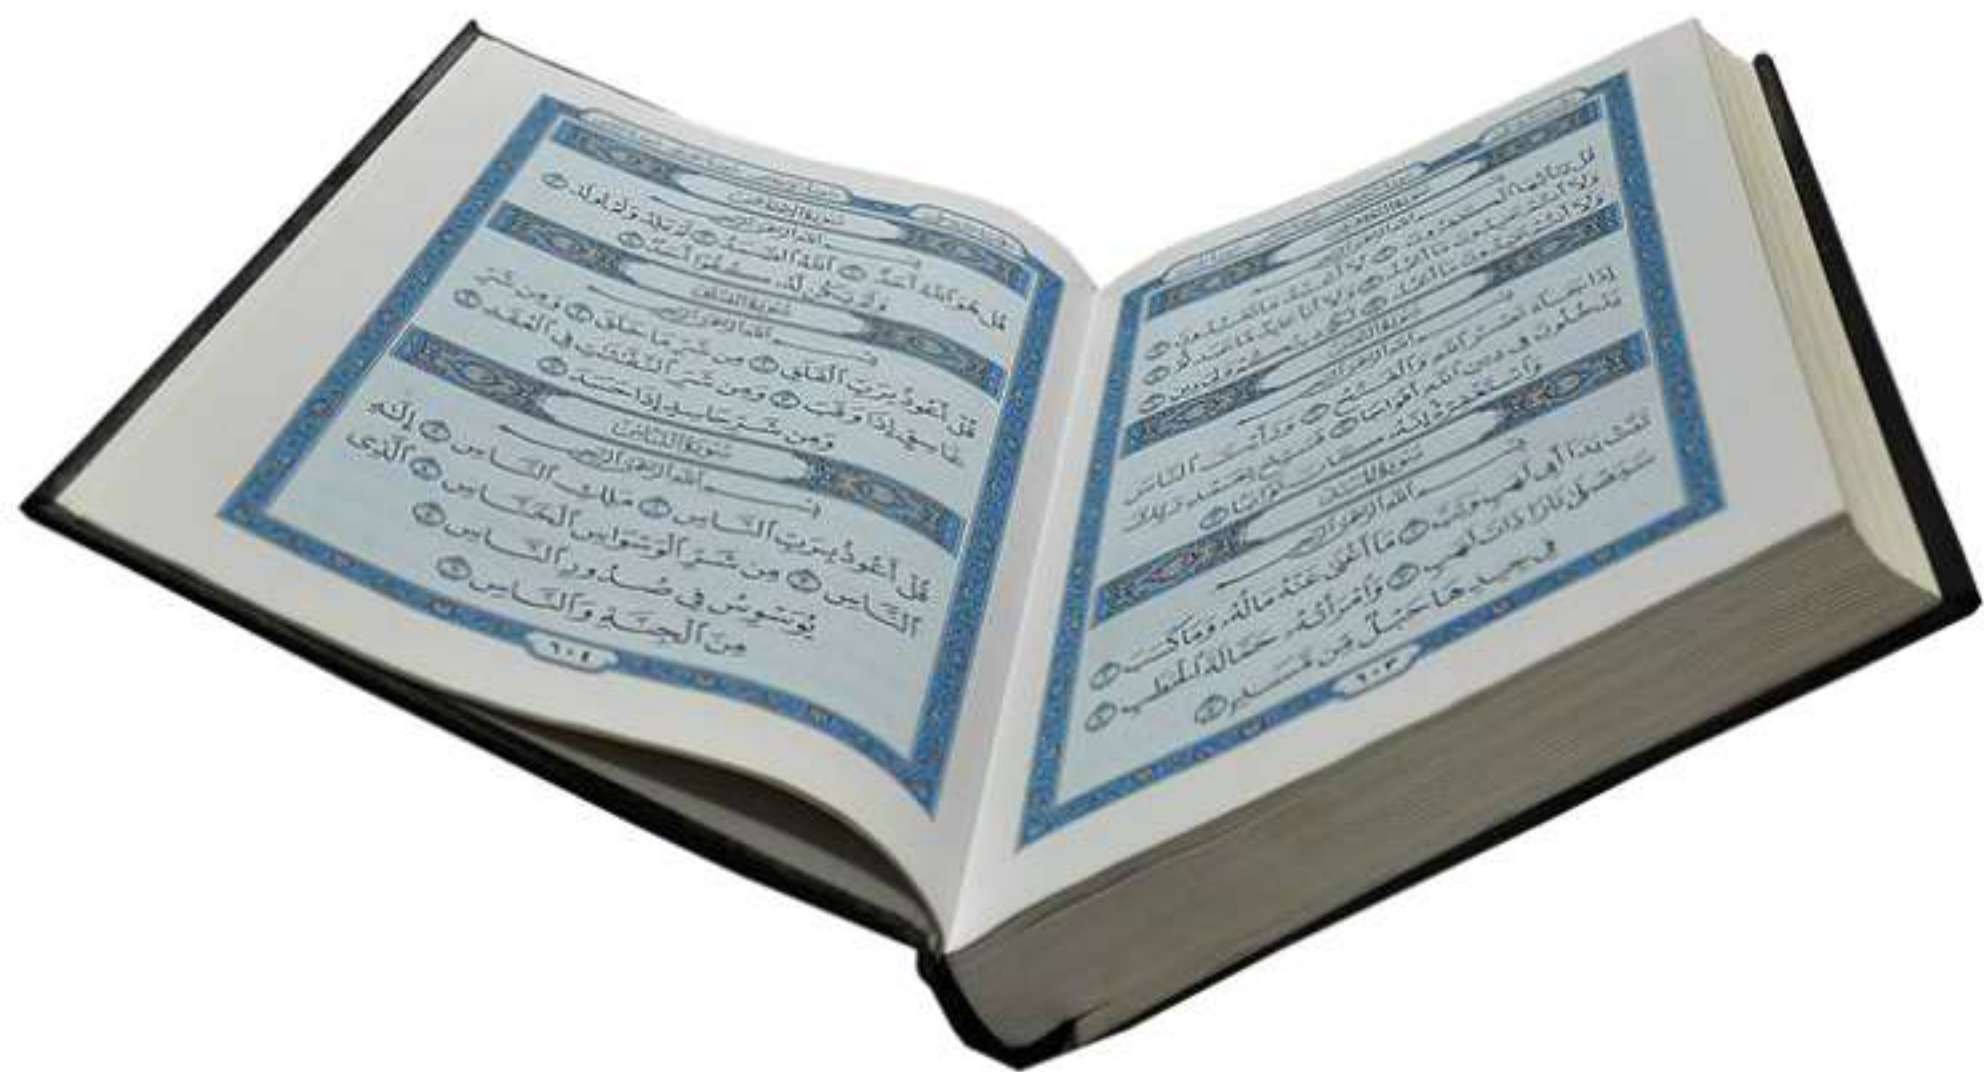 سُورَةُ الكَافِرُونَ
بِسْمِ ٱللَّهِ ٱلرَّحْمَٰنِ ٱلرَّحِيمِ
قُلْ يَٰٓأَيُّهَا ٱلْكَٰفِرُونَ ١ لَآ أَعْبُدُ مَا تَعْبُدُونَ ٢
وَلَآ أَنتُمْ عَٰبِدُونَ مَآ أَعْبُدُ ٣ وَلَآ أَنَا۠ عَابِدٌ مَّا عَبَدتُّمْ ٤
وَلَآ أَنتُمْ عَٰبِدُونَ مَآ أَعْبُدُ ٥ لَكُمْ دِينُكُمْ وَلِىَ دِينِ ٦
سُورَةُ النَّصْرِ
بِسْمِ ٱللَّهِ ٱلرَّحْمَٰنِ ٱلرَّحِيمِ
إِذَا جَآءَ نَصْرُ ٱللَّهِ وَٱلْفَتْحُ ١ وَرَأَيْتَ ٱلنَّاسَ
يَدْخُلُونَ فِى دِينِ ٱللَّهِ أَفْوَاجًا ٢ فَسَبِّحْ بِحَمْدِ رَبِّكَ
وَٱسْتَغْفِرْهُ إِنَّهُۥ كَانَ تَوَّابًۢا ٣
سُورَةُ المَسَدِ
بِسْمِ ٱللَّهِ ٱلرَّحْمَٰنِ ٱلرَّحِيمِ
تَبَّتْ يَدَآ أَبِى لَهَبٍ وَتَبَّ ١ مَآ أَغْنَىٰ عَنْهُ مَالُهُۥ وَمَا كَسَبَ ٢
سَيَصْلَىٰ نَارًا ذَاتَ لَهَبٍ ٣ وَٱمْرَأَتُهُۥ حَمَّالَةَ ٱلْحَطَبِ ٤
فِى جِيدِهَا حَبْلٌ مِّن مَّسَدٍۭ ٥
٦٠٣
سُورَةُ الإِخْلَاصِ
بِسْمِ ٱللَّهِ ٱلرَّحْمَٰنِ ٱلرَّحِيمِ
قُلْ هُوَ ٱللَّهُ أَحَدٌ ١ ٱللَّهُ ٱلصَّمَدُ ٢ لَمْ يَلِدْ وَلَمْ يُولَدْ ٣
وَلَمْ يَكُن لَّهُۥ كُفُوًا أَحَدٌۢ ٤
سُورَةُ الفَلَقِ
بِسْمِ ٱللَّهِ ٱلرَّحْمَٰنِ ٱلرَّحِيمِ
قُلْ أَعُوذُ بِرَبِّ ٱلْفَلَقِ ١ مِن شَرِّ مَا خَلَقَ ٢ وَمِن شَرِّ
غَاسِقٍ إِذَا وَقَبَ ٣ وَمِن شَرِّ ٱلنَّفَّٰثَٰتِ فِى ٱلْعُقَدِ ٤
وَمِن شَرِّ حَاسِدٍ إِذَا حَسَدَ ٥
سُورَةُ النَّاسِ
بِسْمِ ٱللَّهِ ٱلرَّحْمَٰنِ ٱلرَّحِيمِ
قُلْ أَعُوذُ بِرَبِّ ٱلنَّاسِ ١ مَلِكِ ٱلنَّاسِ ٢ إِلَٰهِ
ٱلنَّاسِ ٣ مِن شَرِّ ٱلْوَسْوَاسِ ٱلْخَنَّاسِ ٤ ٱلَّذِى
يُوَسْوِسُ فِى صُدُورِ ٱلنَّاسِ ٥
مِنَ ٱلْجِنَّةِ وَٱلنَّاسِ ٦
٦٠٤